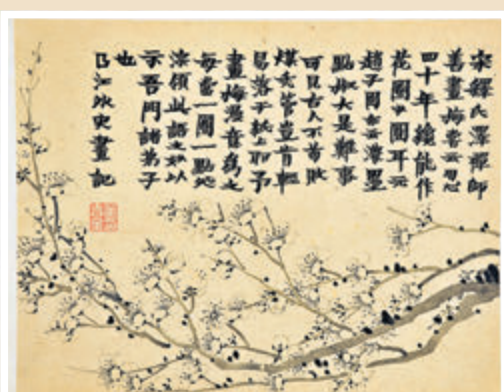 宋釋氏澤禪師
善畫梅嘗云用心
四十年纔能作
花圈少圓耳元
趙子固亦云濃墨
點椒大是難事
可見古人不苟敗
煤禿管豈肯輕
易落于紙上耶予
畫梅意為之
每當一圈一點處
深領此語之妙以
示吾門諸弟子
也
曲江外史畫記